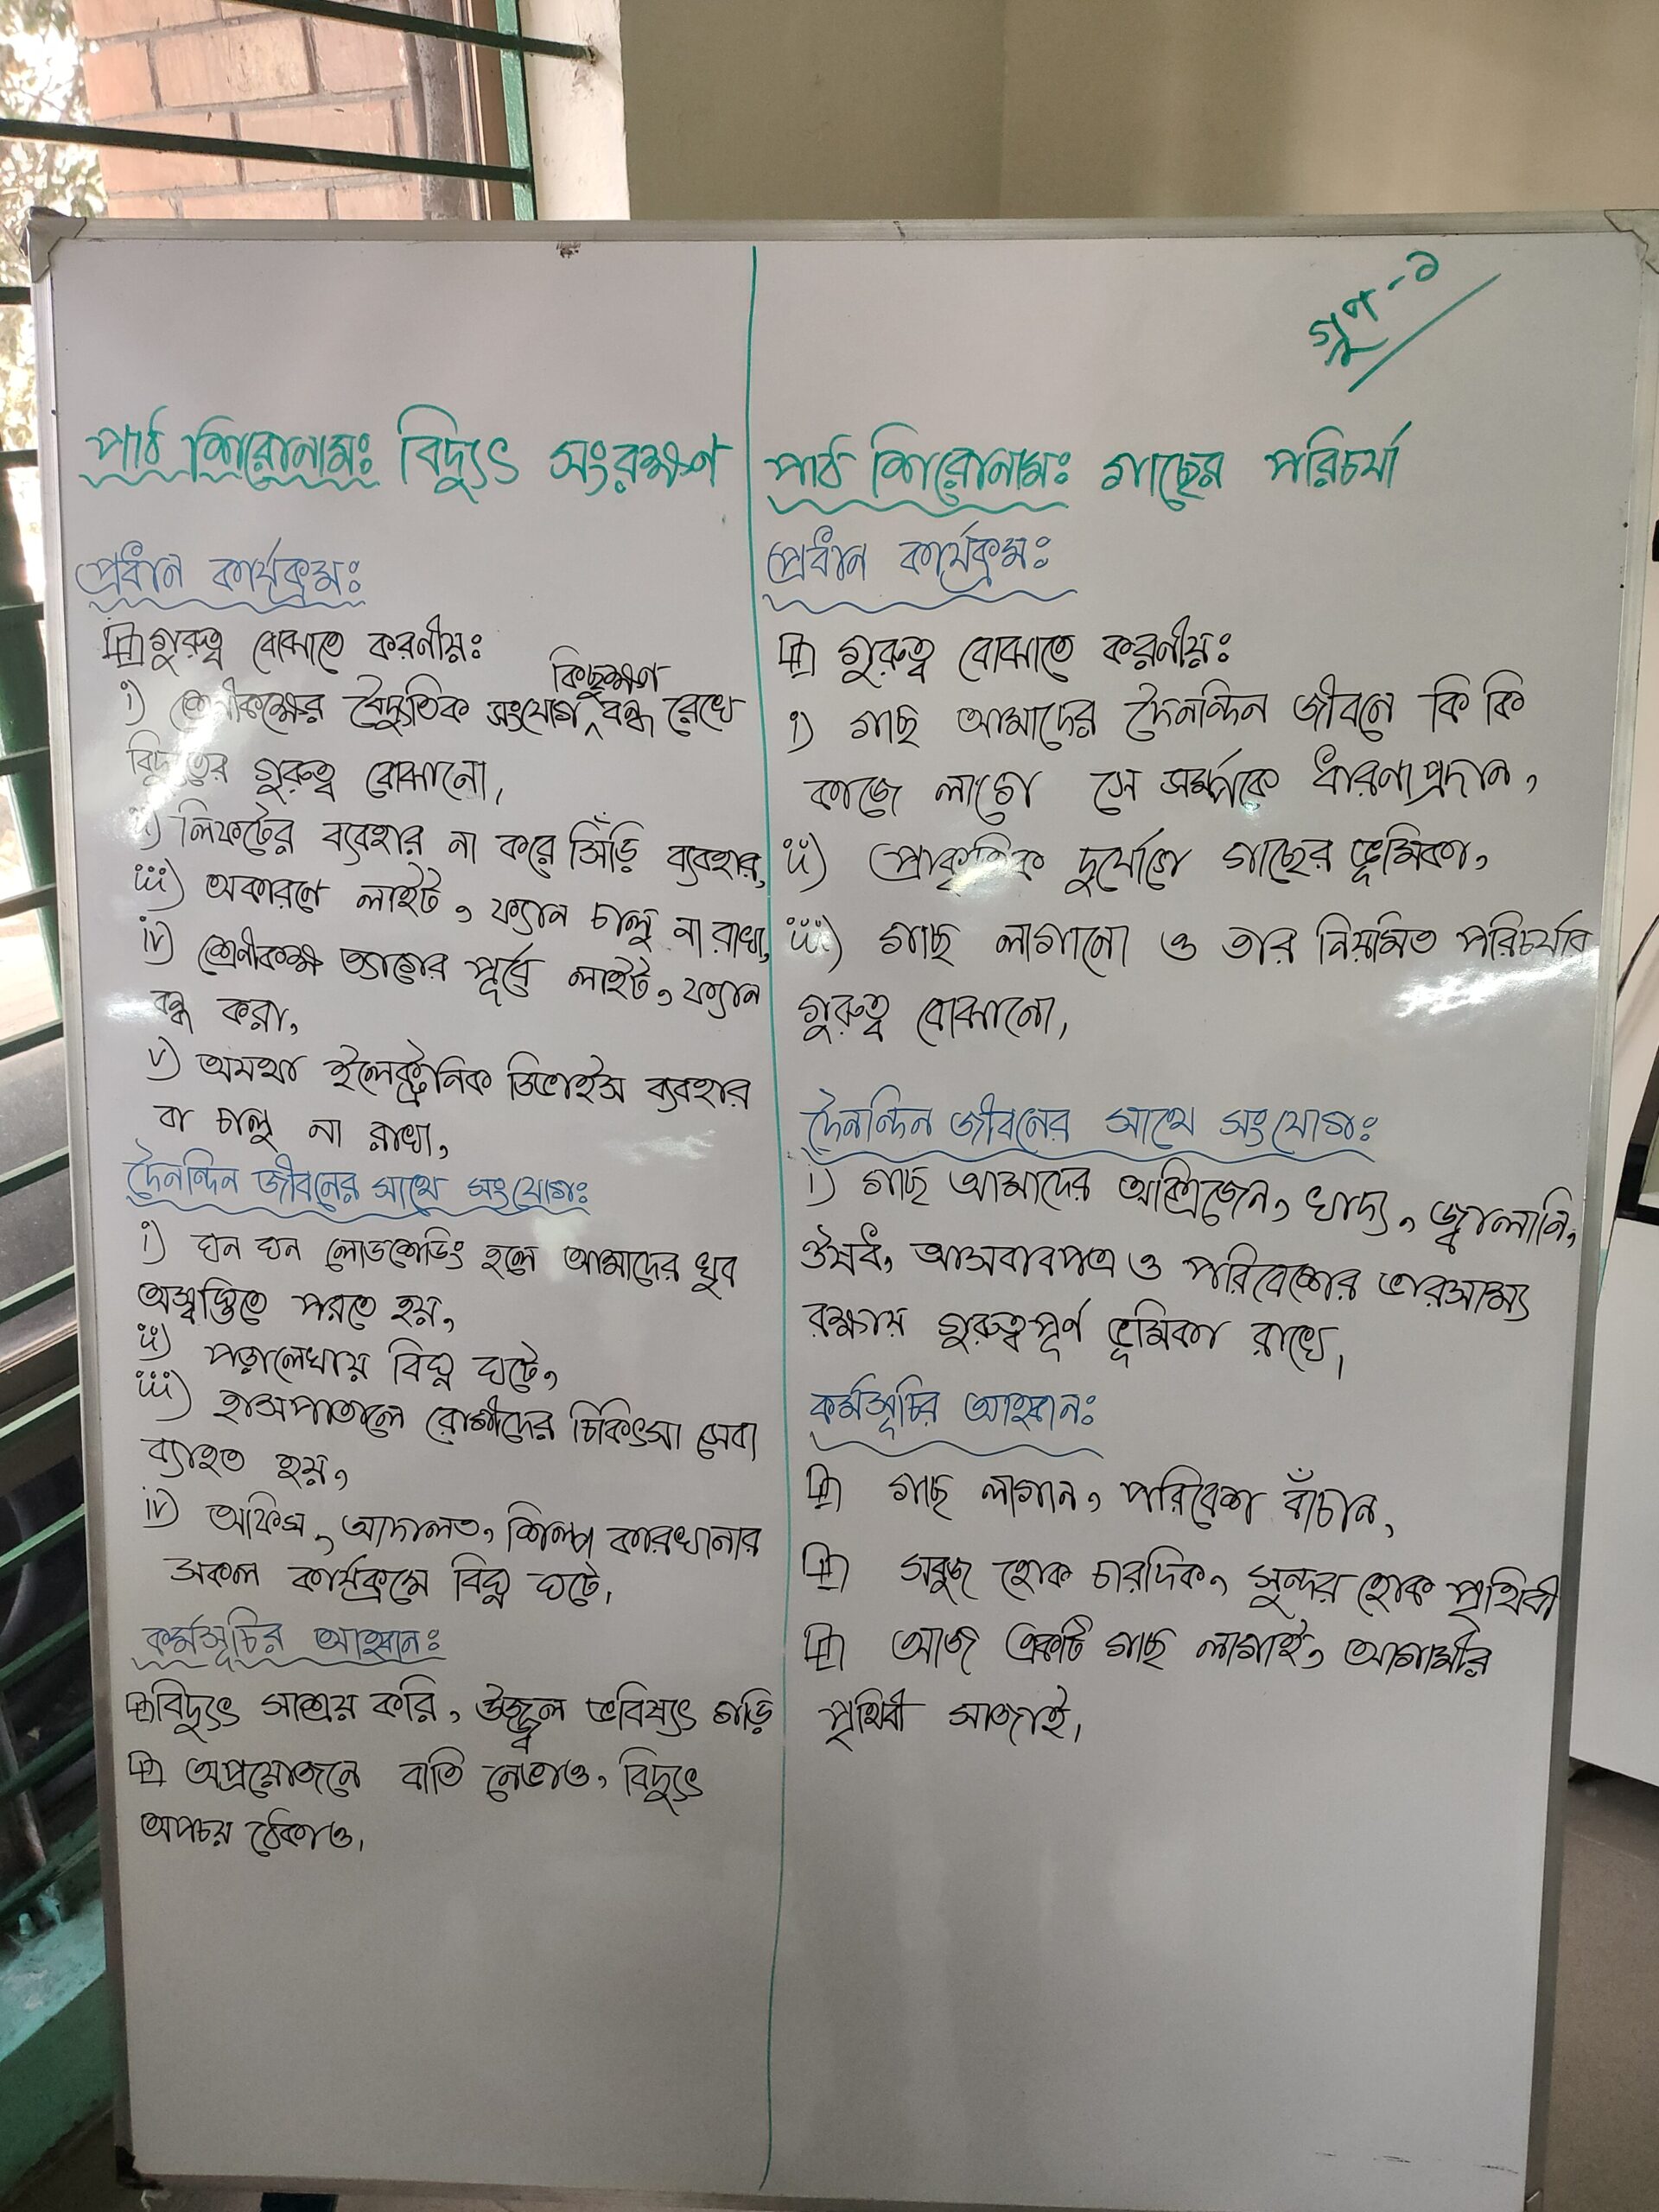 গ্রুপ-১
পাঠ শিরোনামঃ বিদ্যুৎ সংরক্ষণ
প্রধান কার্যক্রমঃ
গুরুত্ব বোঝাতে করণীয়ঃ
কিছুক্ষণ
i) শ্রেণীকক্ষের বৈদ্যুতিক সংযোগ ^ বন্ধ রেখে
বিদ্যুতের গুরুত্ব বোঝানো।
ii) লিফটের ব্যবহার না করে সিঁড়ি ব্যবহার,
iii) অকারণে লাইট, ফ্যান চালু না রাখা,
iv) শ্রেণীকক্ষ ত্যাগের পূর্বে লাইট, ফ্যান
বন্ধ করা,
v) অযথা ইলেক্ট্রনিক ডিভাইস ব্যবহার
বা চালু না রাখা,
দৈনন্দিন জীবনের সাথে সংযোগঃ
i) ঘন ঘন লোডশেডিং হলে আমাদের খুব
অস্বস্তিতে পরতে হয়,
ii) পড়ালেখায় বিঘ্ন ঘটে,
iii) হাসপাতালে রোগীদের চিকিৎসা সেবা
ব্যাহত হয়,
iv) অফিস, আদালত, শিল্প কারখানার
সকল কার্যক্রমে বিঘ্ন ঘটে।
কর্মসূচির আহবানঃ
বিদ্যুৎ সাশ্রয় করি, উজ্জ্বল ভবিষ্যৎ গড়ি
অপ্রয়োজনে বাতি নেভাও, বিদ্যুৎ
অপচয় ঠেকাও।
পাঠ শিরোনামঃ গাছের পরিচর্যা
প্রধান কার্যক্রমঃ
গুরুত্ব বোঝাতে করণীয়ঃ
i) গাছ আমাদের দৈনন্দিন জীবনে কি কি
কাজে লাগে সে সর্ম্পকে ধারণা প্রদান,
ii) প্রাকৃতিক দুর্যোগে গাছের ভূমিকা,
iii) গাছ লাগানো ও তার নিয়মিত পরিচর্যার
গুরুত্ব বোঝানো।
দৈনন্দিন জীবনের সাথে সংযোগঃ
i) গাছ আমাদের অক্সিজেন, খাদ্য, জ্বালানি,
ঔষধ, আসবাবপত্র ও পরিবেশের ভারসাম্য
রক্ষায় গুরুত্বপূর্ণ ভূমিকা রাখে।
কর্মসূচির আহবানঃ
গাছ লাগান, পরিবেশ বাঁচান,
সবুজ হোক চারদিক, সুন্দর হোক পৃথিবী
আজ একটি গাছ লাগাই, আগামীর
পৃথিবী সাজাই।